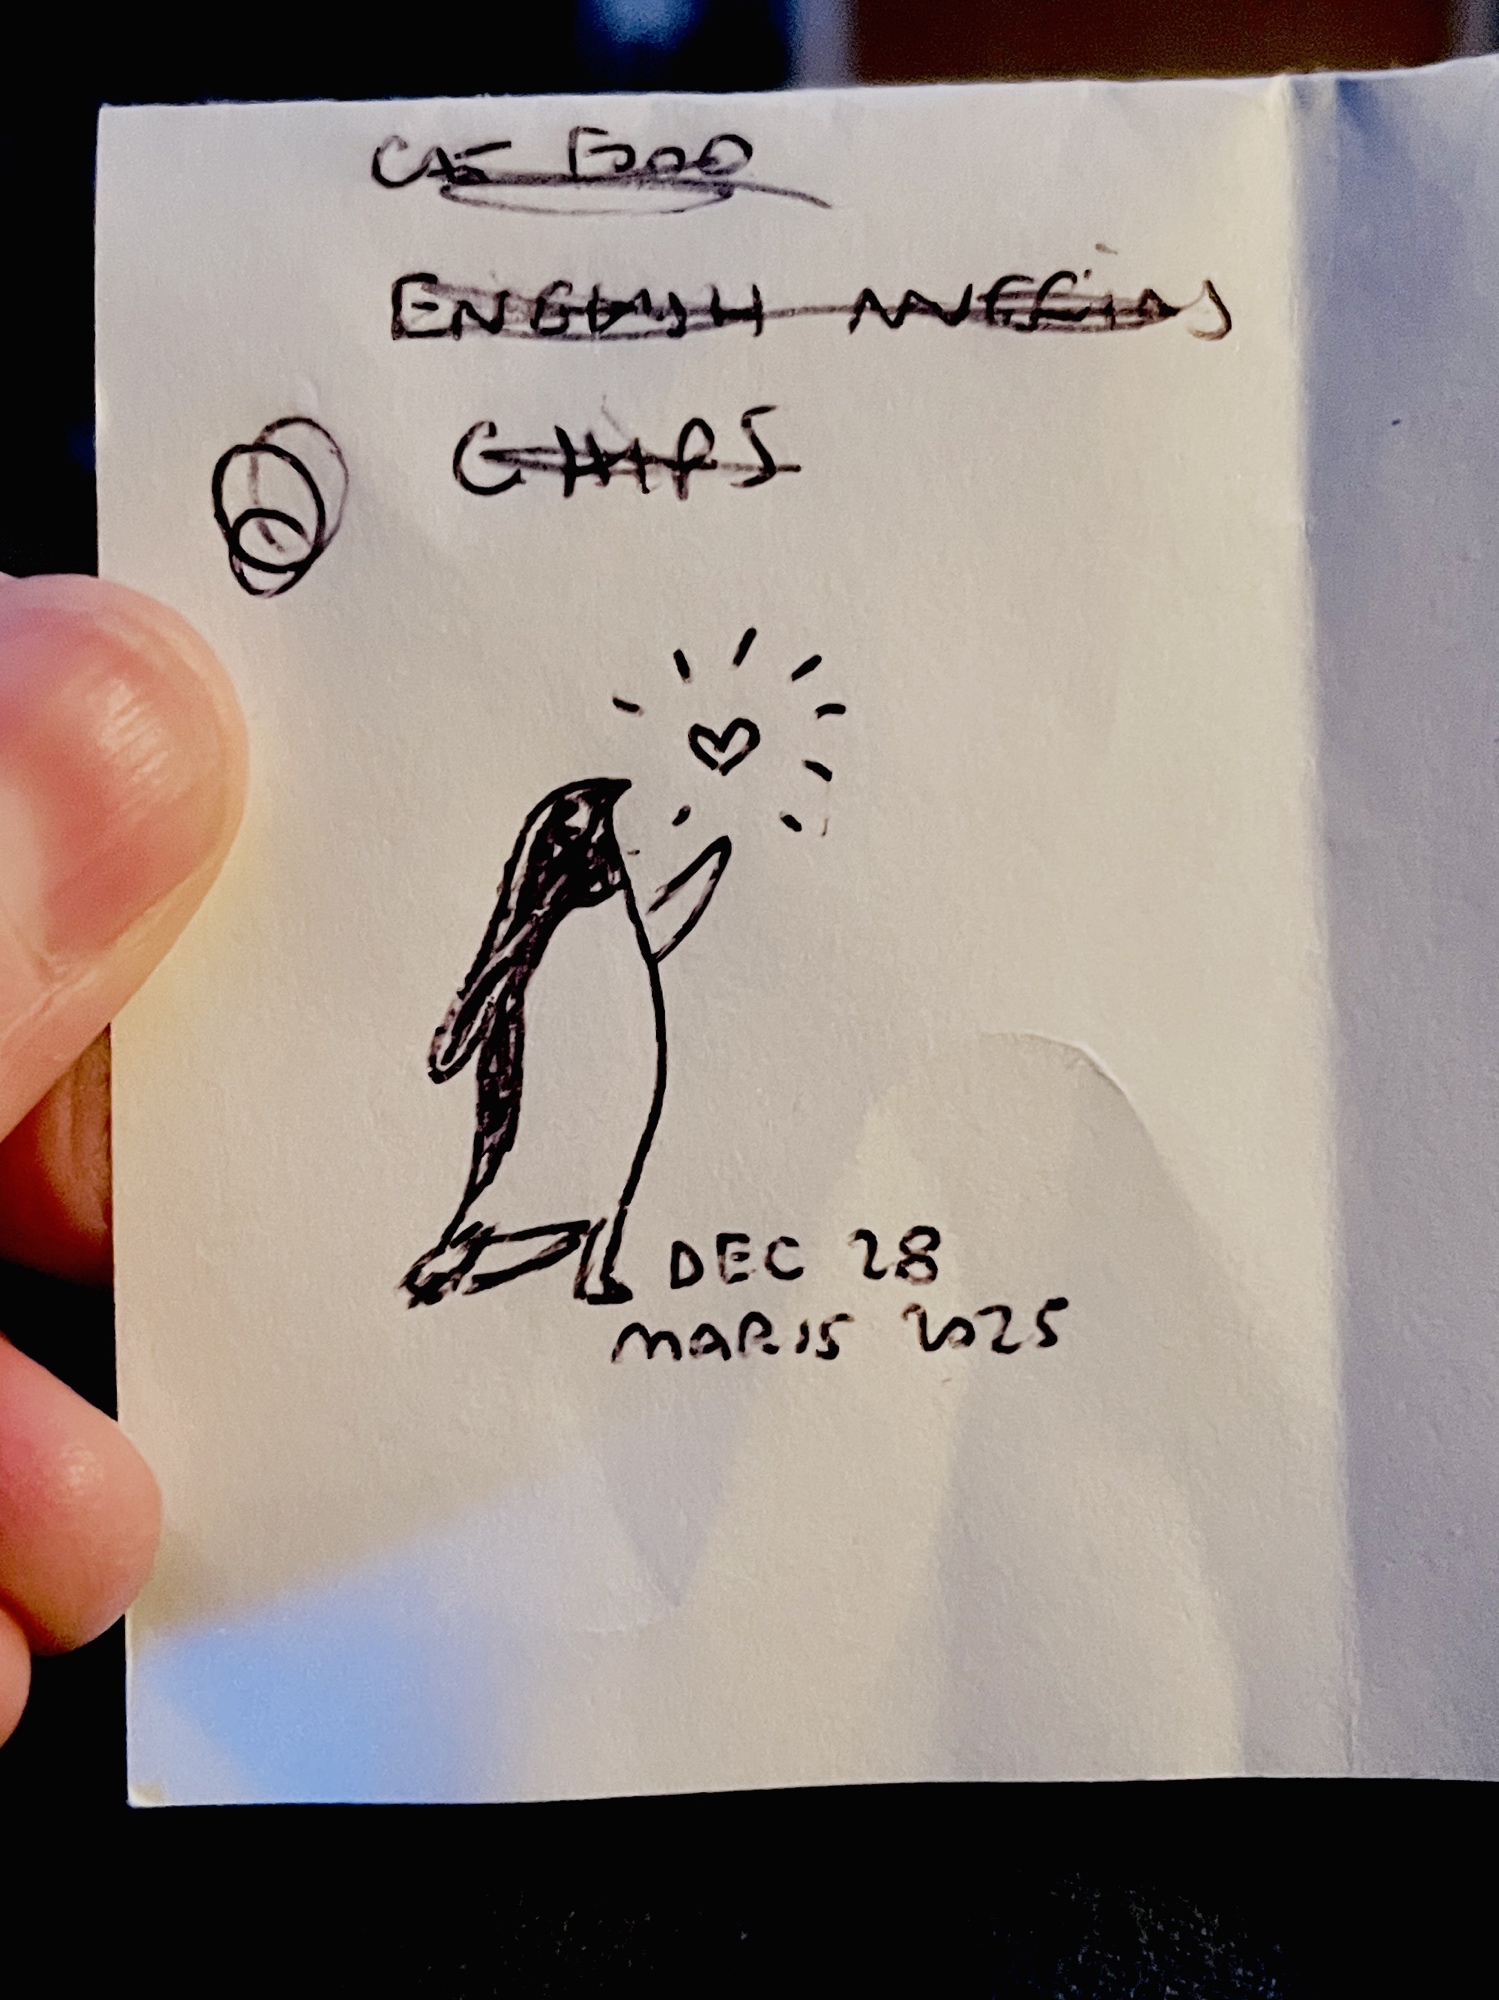 CAT FOOD
ENGLISH MUFFINS
CHIPS
DEC 28
MARIS 2025